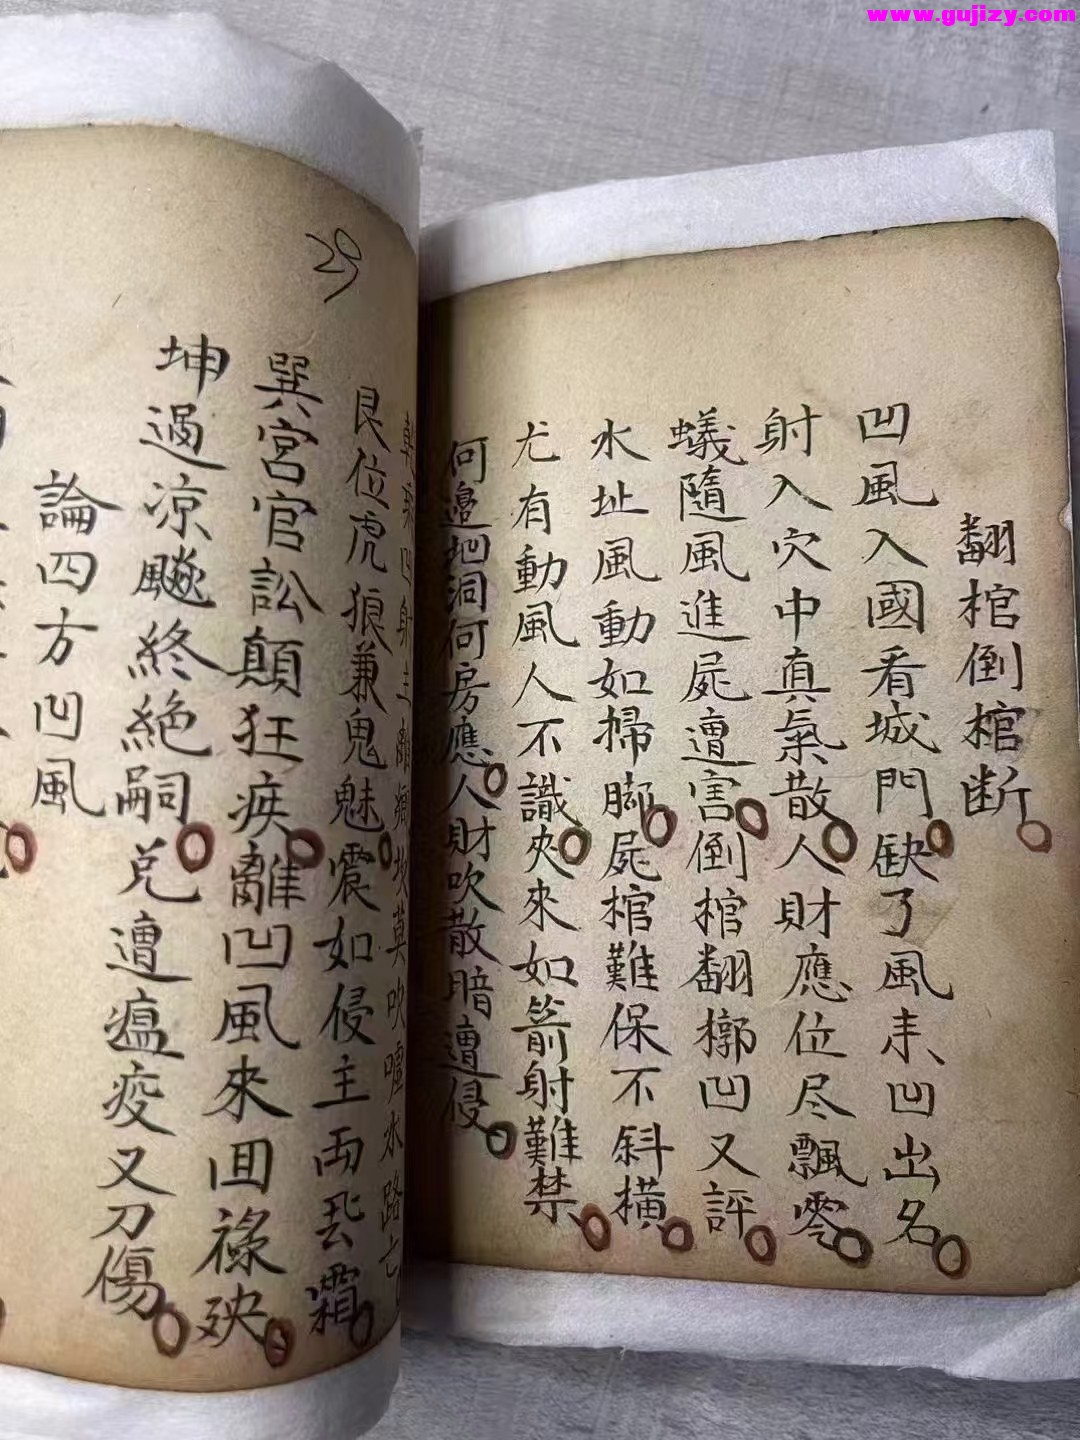 www.gujizy.com
翻棺倒棺断
凹風入國看城門缺了風来凹出名
射入穴中真氣散人財應位尽飄零
蟻隨風進屍遭害倒棺翻槨凹又評
水址風動如掃脚屍棺難保不斜橫
尤有動風人不識夾來如箭射難禁
何邊坳洞何房應人財吹散暗遭侵
29
凹身主離鄉坎莫吹噓水路亡
艮位虎狼兼鬼魅震如侵主雨霜
巽宮官訟顛狂疾離凹風來回祿殃
坤過凉飈終絕嗣兌遭瘟疫又刀傷
論四方凹風